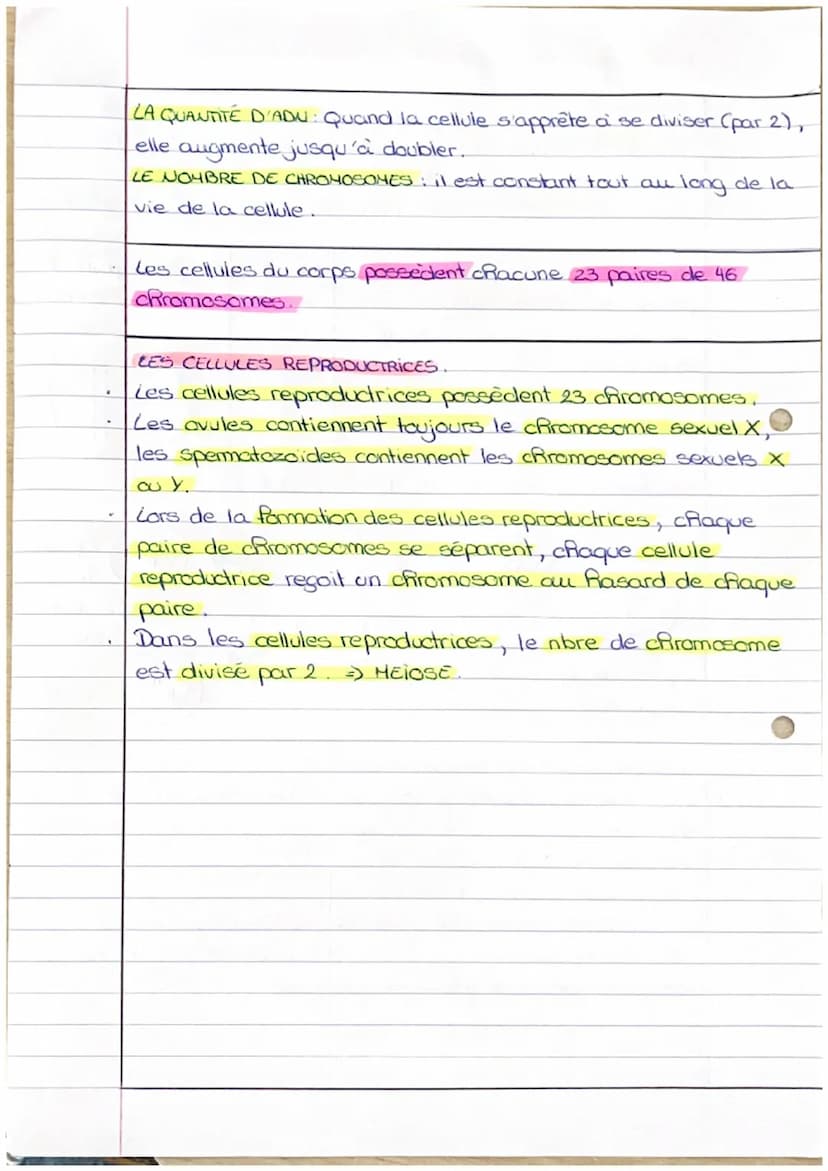 LA QUANTITÉ D'ADN : Quand la cellule s'apprête à se diviser (par 2),
elle augmente jusqu'à doubler.
LE NOMBRE DE CHROMOSOMES : il est constant tout au long de la
vie de la cellule.
Les cellules du corps possèdent chacune 23 paires de 46
chromosomes.
LES CELLULES REPRODUCTRICES.
. Les cellules reproductrices possèdent 23 chromosomes.
. Les ovules contiennent toujours le chromosome sexuel X,
les spermatozoïdes contiennent les chromosomes sexuels X
ou Y.
. Lors de la formation des cellules reproductrices, chaque
paire de chromosomes se séparent, chaque cellule
reproductrice reçoit un chromosome au hasard de chaque
paire.
. Dans les cellules reproductrices, le nbre de chromosome
est divisé par 2. => MEÏOSE.